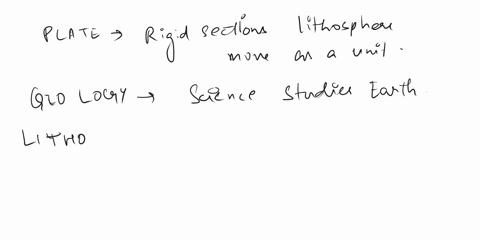 PLATE → Rigid sections lithosphere
move as a unit.
GEOLOGY → Science Studies Earth.
LITHO